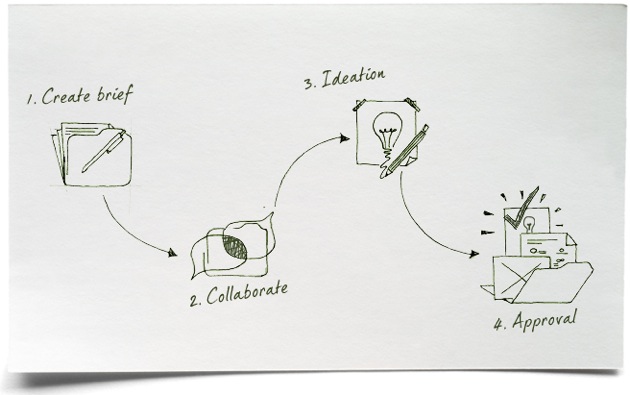 1. Create brief
2. Collaborate
3. Ideation
4. Approval